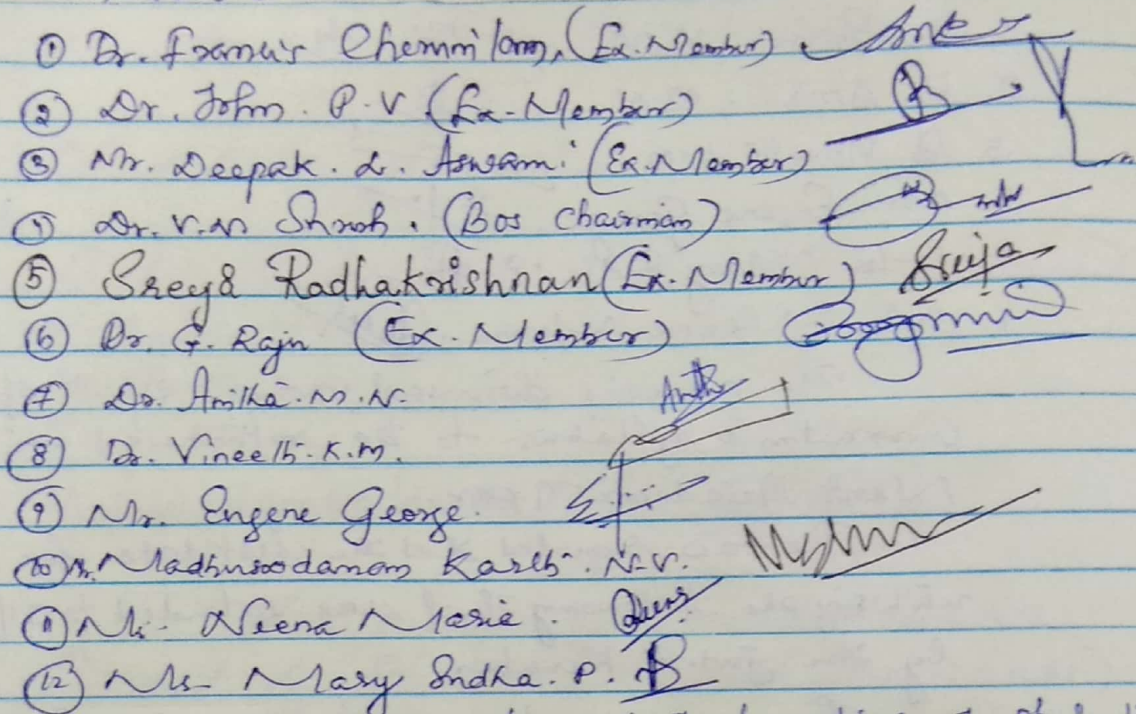 ① Dr. Francis Chemmilam, (Ex. Member)
② Dr. John. P.V (Ex-Member)
③ Mr. Deepak. L. Aswani (Ex. Member)
④ Dr. V.N (Bos Chairman)
⑤ Sreeja Radhakrishnan (Ex. Member) Sreeja
⑥ Dr. G. Raju (Ex. Member)
⑦ Dr. Anitha. M. N.
⑧ Dr. Vineeth. K.M.
⑨ Mr. Eugene George.
⑩ Mr. Madhusoodanan Kartb. N.V.
⑪ Ms. Neena Marie.
⑫ Ms Mary Indha. P.